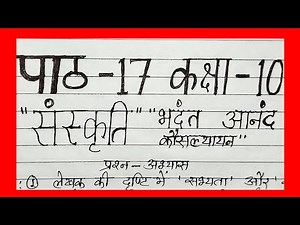 पाठ -17 कक्षा -10
"संस्कृति" "भदंत आनंद
कौसल्यायन"
प्रश्न-अभ्यास
① लेखक की दृष्टि में 'सभ्यता' और